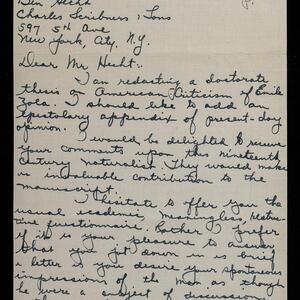 Ben Hecht
Charles Scribners & Sons
597 5th Ave
New York, City, N.Y.
Dear Mr Hecht:
I am redacting a doctorate
thesis on American Criticism of Emile
Zola. I should like to add an
epistolary appendix of present-day
opinion.
I would be delighted to receive
your comments upon this nineteenth
century naturalist. They would make
an invaluable contribution to the
manuscript.
I hesitate to offer you the
usual academic, meaningless,
questionnaire. Rather I prefer
if it is your pleasure to answer
that you jot down in as brief
a letter as you desire your spontaneous
impressions of the man as though
he were a subject of discussion